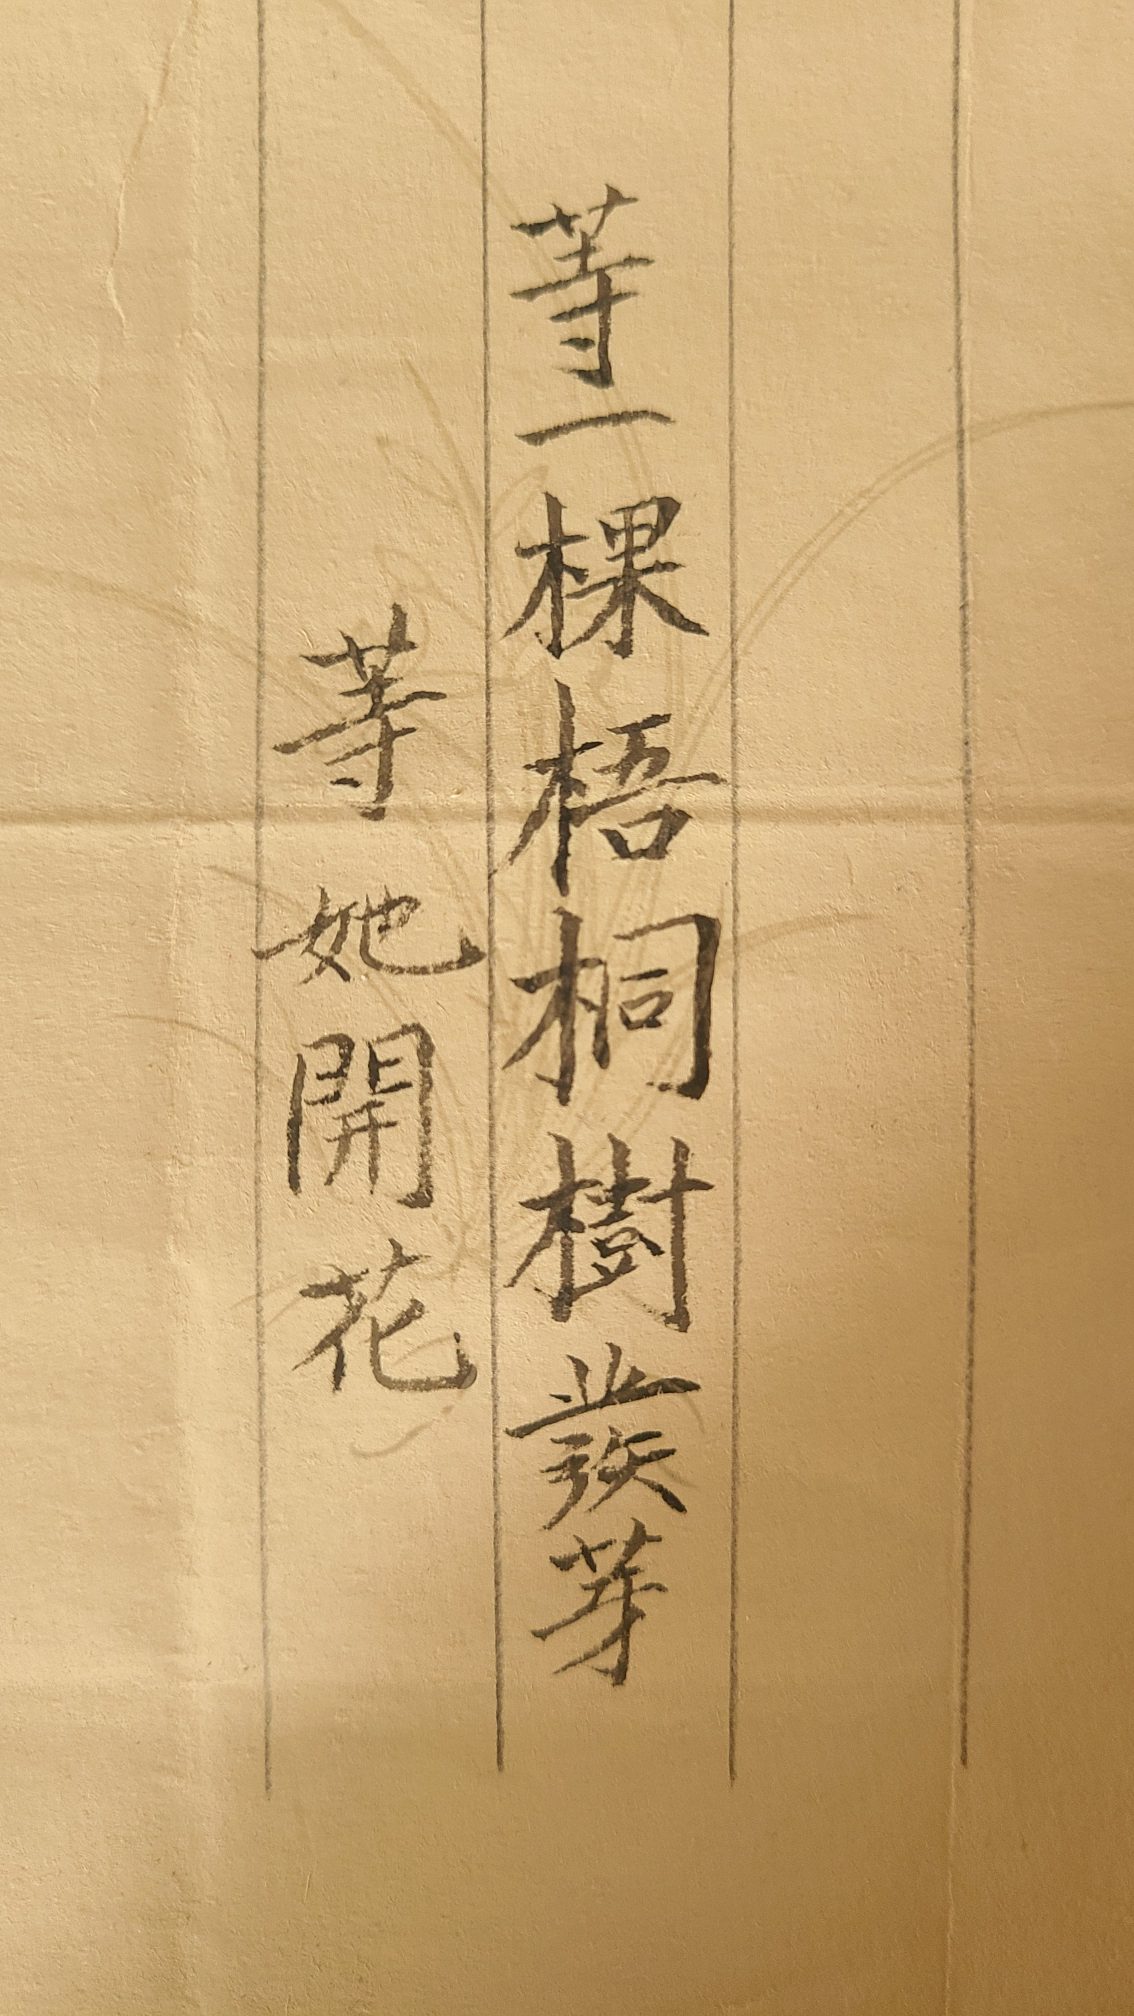 等一棵梧桐樹發芽
等她開花